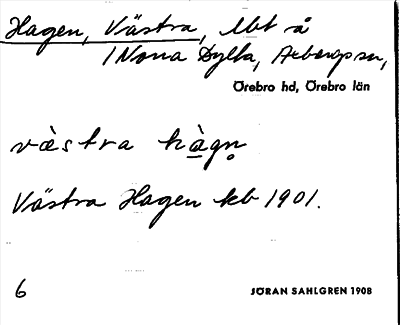 Hagen, Västra, lht å
1 Norra Dylta, Axbergs sn,
Örebro hd, Örebro län
vàstra hàgn̥
Västra Hagen kb 1901.
6
JÖRAN SAHLGREN 1908